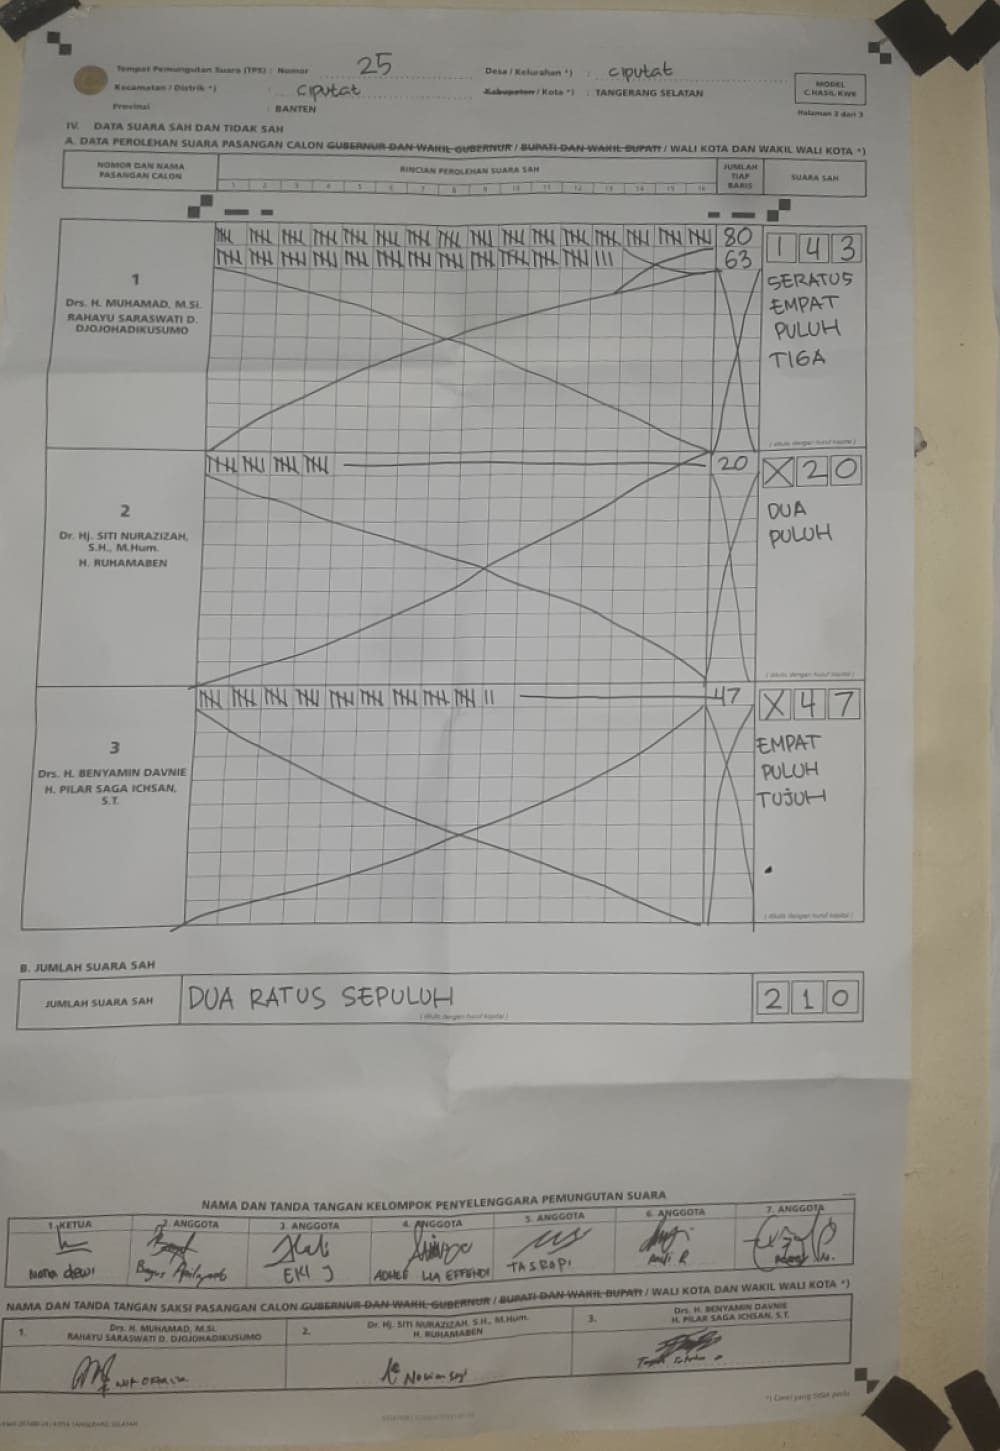 Tempat Pemungutan Suara (TPS) : Nomor 25 Desa / Kelurahan *) : Ciputat
Kecamatan / Distrik *) : Ciputat Kabupaten / Kota *) : TANGERANG SELATAN
Provinsi : BANTEN
MODEL
C.HASIL-KWK
Halaman 2 dari 3
IV. DATA SUARA SAH DAN TIDAK SAH
A. DATA PEROLEHAN SUARA PASANGAN CALON GUBERNUR DAN WAKIL GUBERNUR / BUPATI DAN WAKIL BUPATI / WALI KOTA DAN WAKIL WALI KOTA *)
NOMOR DAN NAMA
PASANGAN CALON
RINCIAN PEROLEHAN SUARA SAH
1 2 3 4 5 6 7 8 9 10 11 12 13 14 15 16
JUMLAH
TIAP
BARIS
SUARA SAH
1
Drs. H. MUHAMAD, M.Si.
RAHAYU SARASWATI D.
DJOJOHADIKUSUMO
80
63
1 4 3
SERATUS
EMPAT
PULUH
TIGA
( ditulis dengan huruf kapital )
2
Dr. Hj. SITI NURAZIZAH,
S.H., M.Hum.
H. RUHAMABEN
20
X 2 0
DUA
PULUH
( ditulis dengan huruf kapital )
3
Drs. H. BENYAMIN DAVNIE
H. PILAR SAGA ICHSAN,
S.T.
47
X 4 7
EMPAT
PULUH
TUJUH
( ditulis dengan huruf kapital )
B. JUMLAH SUARA SAH
JUMLAH SUARA SAH
DUA RATUS SEPULUH
( ditulis dengan huruf kapital )
2 1 0
NAMA DAN TANDA TANGAN KELOMPOK PENYELENGGARA PEMUNGUTAN SUARA
1. KETUA 2. ANGGOTA 3. ANGGOTA 4. ANGGOTA 5. ANGGOTA 6. ANGGOTA 7. ANGGOTA
dewi EKI J LIA EFFENDI TASROPI
NAMA DAN TANDA TANGAN SAKSI PASANGAN CALON GUBERNUR DAN WAKIL GUBERNUR / BUPATI DAN WAKIL BUPATI / WALI KOTA DAN WAKIL WALI KOTA *)
1. Drs. H. MUHAMAD, M.Si.
RAHAYU SARASWATI D. DJOJOHADIKUSUMO
2. Dr. Hj. SITI NURAZIZAH, S.H., M.Hum.
H. RUHAMABEN
3. Drs. H. BENYAMIN DAVNIE
H. PILAR SAGA ICHSAN, S.T.
*) Coret yang tidak perlu